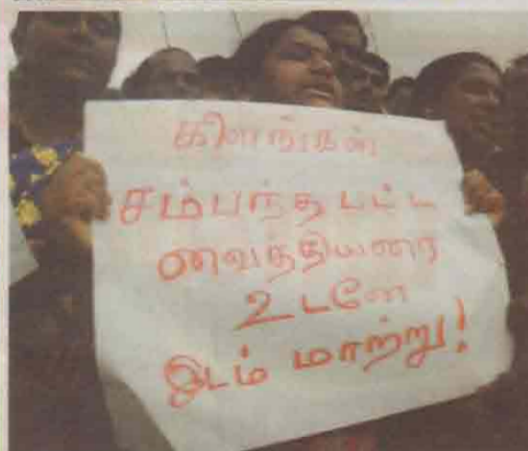 கிளாங்கன்
சம்பந்தபட்ட
வைத்தியரை
உடனே
இடம் மாற்று!